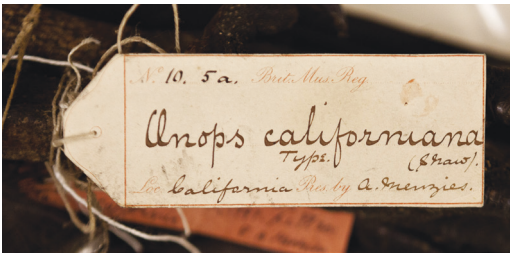 No. 10. 5a. Brit. Mus. Reg.
Anops californiana
Type. (Shaw).
Loc California Pres by A. Menzies.